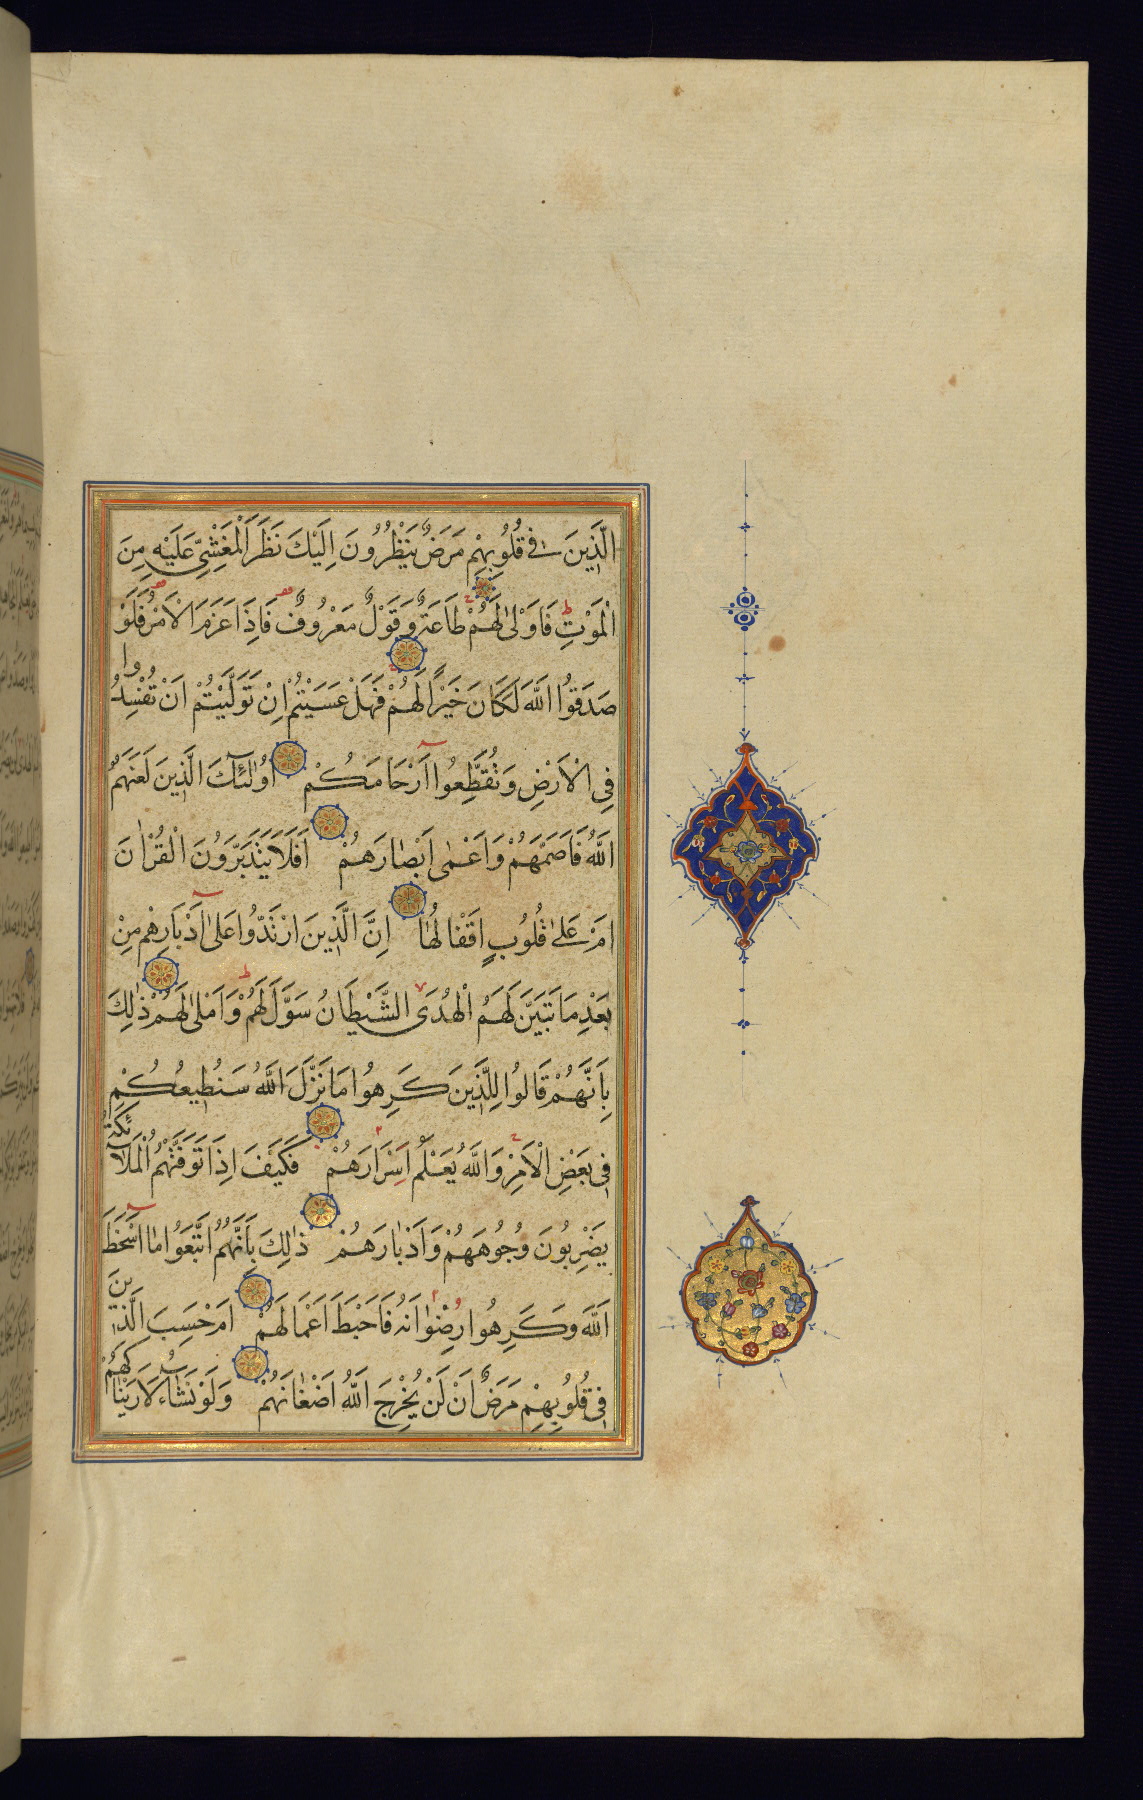 الَّذِينَ فِي قُلُوبِهِمْ مَرَضٌ يَنْظُرُونَ اِلَيْكَ نَظَرَ الْمَغْشِيِّ عَلَيْهِ مِنَ
الْمَوْتِ فَاَوْلٰى لَهُمْ طَاعَةٌ وَقَوْلٌ مَعْرُوفٌ فَاِذَا عَزَمَ الْاَمْرُ فَلَوْ
صَدَقُوا اللّٰهَ لَكَانَ خَيْرًا لَهُمْ فَهَلْ عَسَيْتُمْ اِنْ تَوَلَّيْتُمْ اَنْ تُفْسِدُوا
فِي الْاَرْضِ وَتُقَطِّعُوا اَرْحَامَكُمْ اُولٰئِكَ الَّذِينَ لَعَنَهُمُ
اللّٰهُ فَاَصَمَّهُمْ وَاَعْمٰى اَبْصَارَهُمْ اَفَلَا يَتَدَبَّرُونَ الْقُرْاٰنَ
اَمْ عَلٰى قُلُوبٍ اَقْفَالُهَا اِنَّ الَّذِينَ ارْتَدُّوا عَلٰى اَدْبَارِهِمْ مِنْ
بَعْدِ مَا تَبَيَّنَ لَهُمُ الْهُدَى الشَّيْطَانُ سَوَّلَ لَهُمْ وَاَمْلٰى لَهُمْ ذٰلِكَ
بِاَنَّهُمْ قَالُوا لِلَّذِينَ كَرِهُوا مَا نَزَّلَ اللّٰهُ سَنُطِيعُكُمْ
فِي بَعْضِ الْاَمْرِ وَاللّٰهُ يَعْلَمُ اِسْرَارَهُمْ فَكَيْفَ اِذَا تَوَفَّتْهُمُ الْمَلَائِكَةُ
يَضْرِبُونَ وُجُوهَهُمْ وَاَدْبَارَهُمْ ذٰلِكَ بِاَنَّهُمُ اتَّبَعُوا مَا اَسْخَطَ
اللّٰهَ وَكَرِهُوا رِضْوَانَهُ فَاَحْبَطَ اَعْمَالَهُمْ اَمْ حَسِبَ الَّذِينَ
فِي قُلُوبِهِمْ مَرَضٌ اَنْ لَنْ يُخْرِجَ اللّٰهُ اَضْغَانَهُمْ وَلَوْ نَشَاءُ لَاَرَيْنَاكَهُمْ